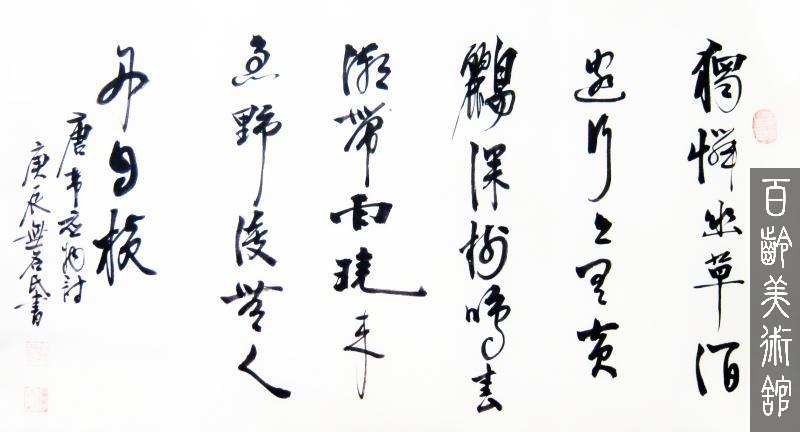 獨憐幽草澗
邊行上有黄
鸝深樹鳴春
潮帶雨晚来
急野渡無人
舟自横
唐韋應物詩
庚辰無名氏書
百齡美術館